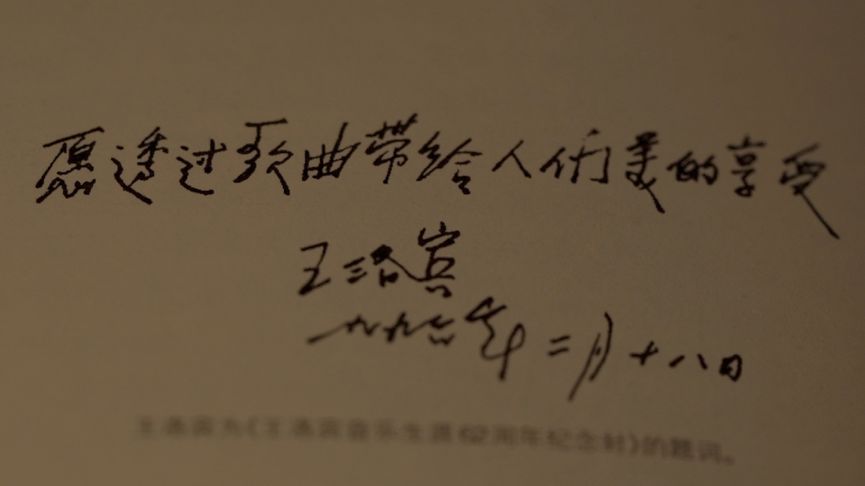 愿透过歌曲带给人们美的享受
王洛宾
一九九六年二月十八日
王洛宾为《王洛宾音乐生涯62周年纪念封》的题词。